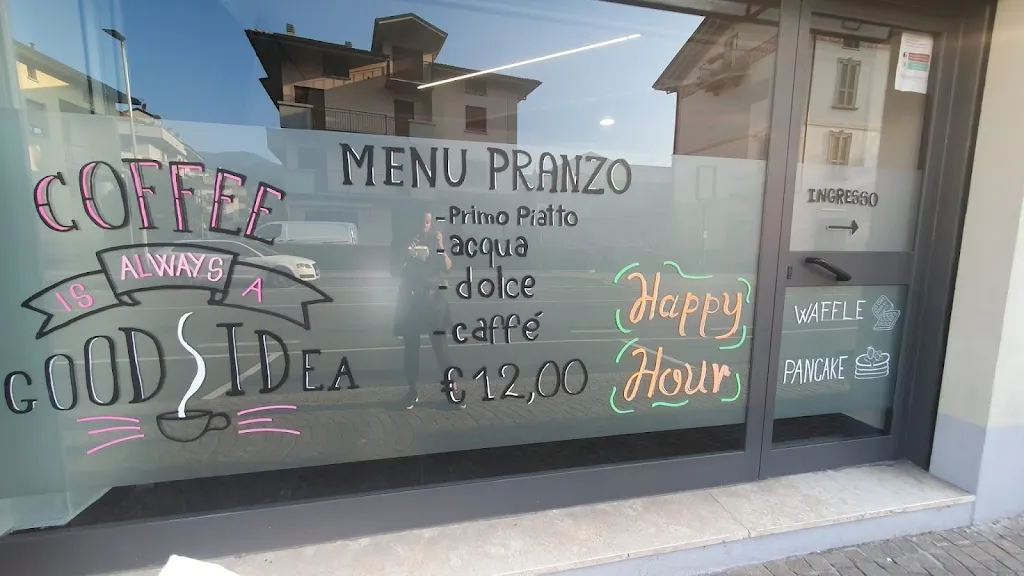 COFFEE
IS ALWAYS A
GOOD IDEA
MENU PRANZO
-Primo Piatto
-acqua
-dolce
-caffé
€12,00
Happy
Hour
INGRESSO
→
WAFFLE
PANCAKE